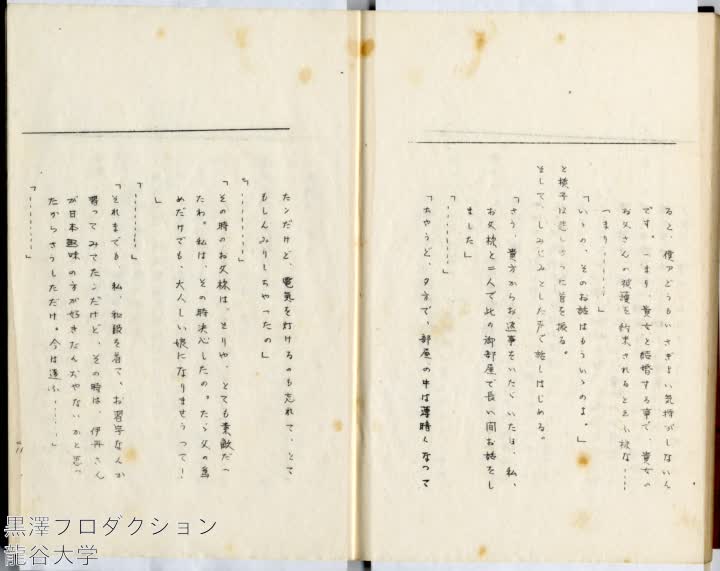 ると、僕アどうもいさぎよい気持がしないん
です。つまり、貴女と結婚する事で、貴女の
お父さんの被護を約束されるとを云ふ様な……
つまり…………」
「いゝの、そのお話はもういゝのよ。」
と様子は悲しさうに首を振る。
そして、しみじみとした声で話しはじめる。
「さう、貴方からお返事をいたゞいた日は、私、
お父様と二人で此の御部屋で長い間お話をし
ました」
「…………」
「ちやうど、夕方で、部屋の中は薄暗くなつて
たンだけど、電気を灯けるのも忘れて、とて
もしんみりしちやつたの」
「…………」
「その時のお父様は、とりや、とても素敵だつ
たわ。私は、その時決心したの。たゞ父の為
めだけでも、大人しい娘になりませうつて！
」
「…………」
「それまでも、私、和服を着て、お習字なんか
習つてみてたンだけど、その時は、伊丹さん
が日本趣味の方が好きなんぢやないかと思つ
たからさうしただけ。今は違ふ……」
「…………」
黒澤プロダクション
龍谷大学